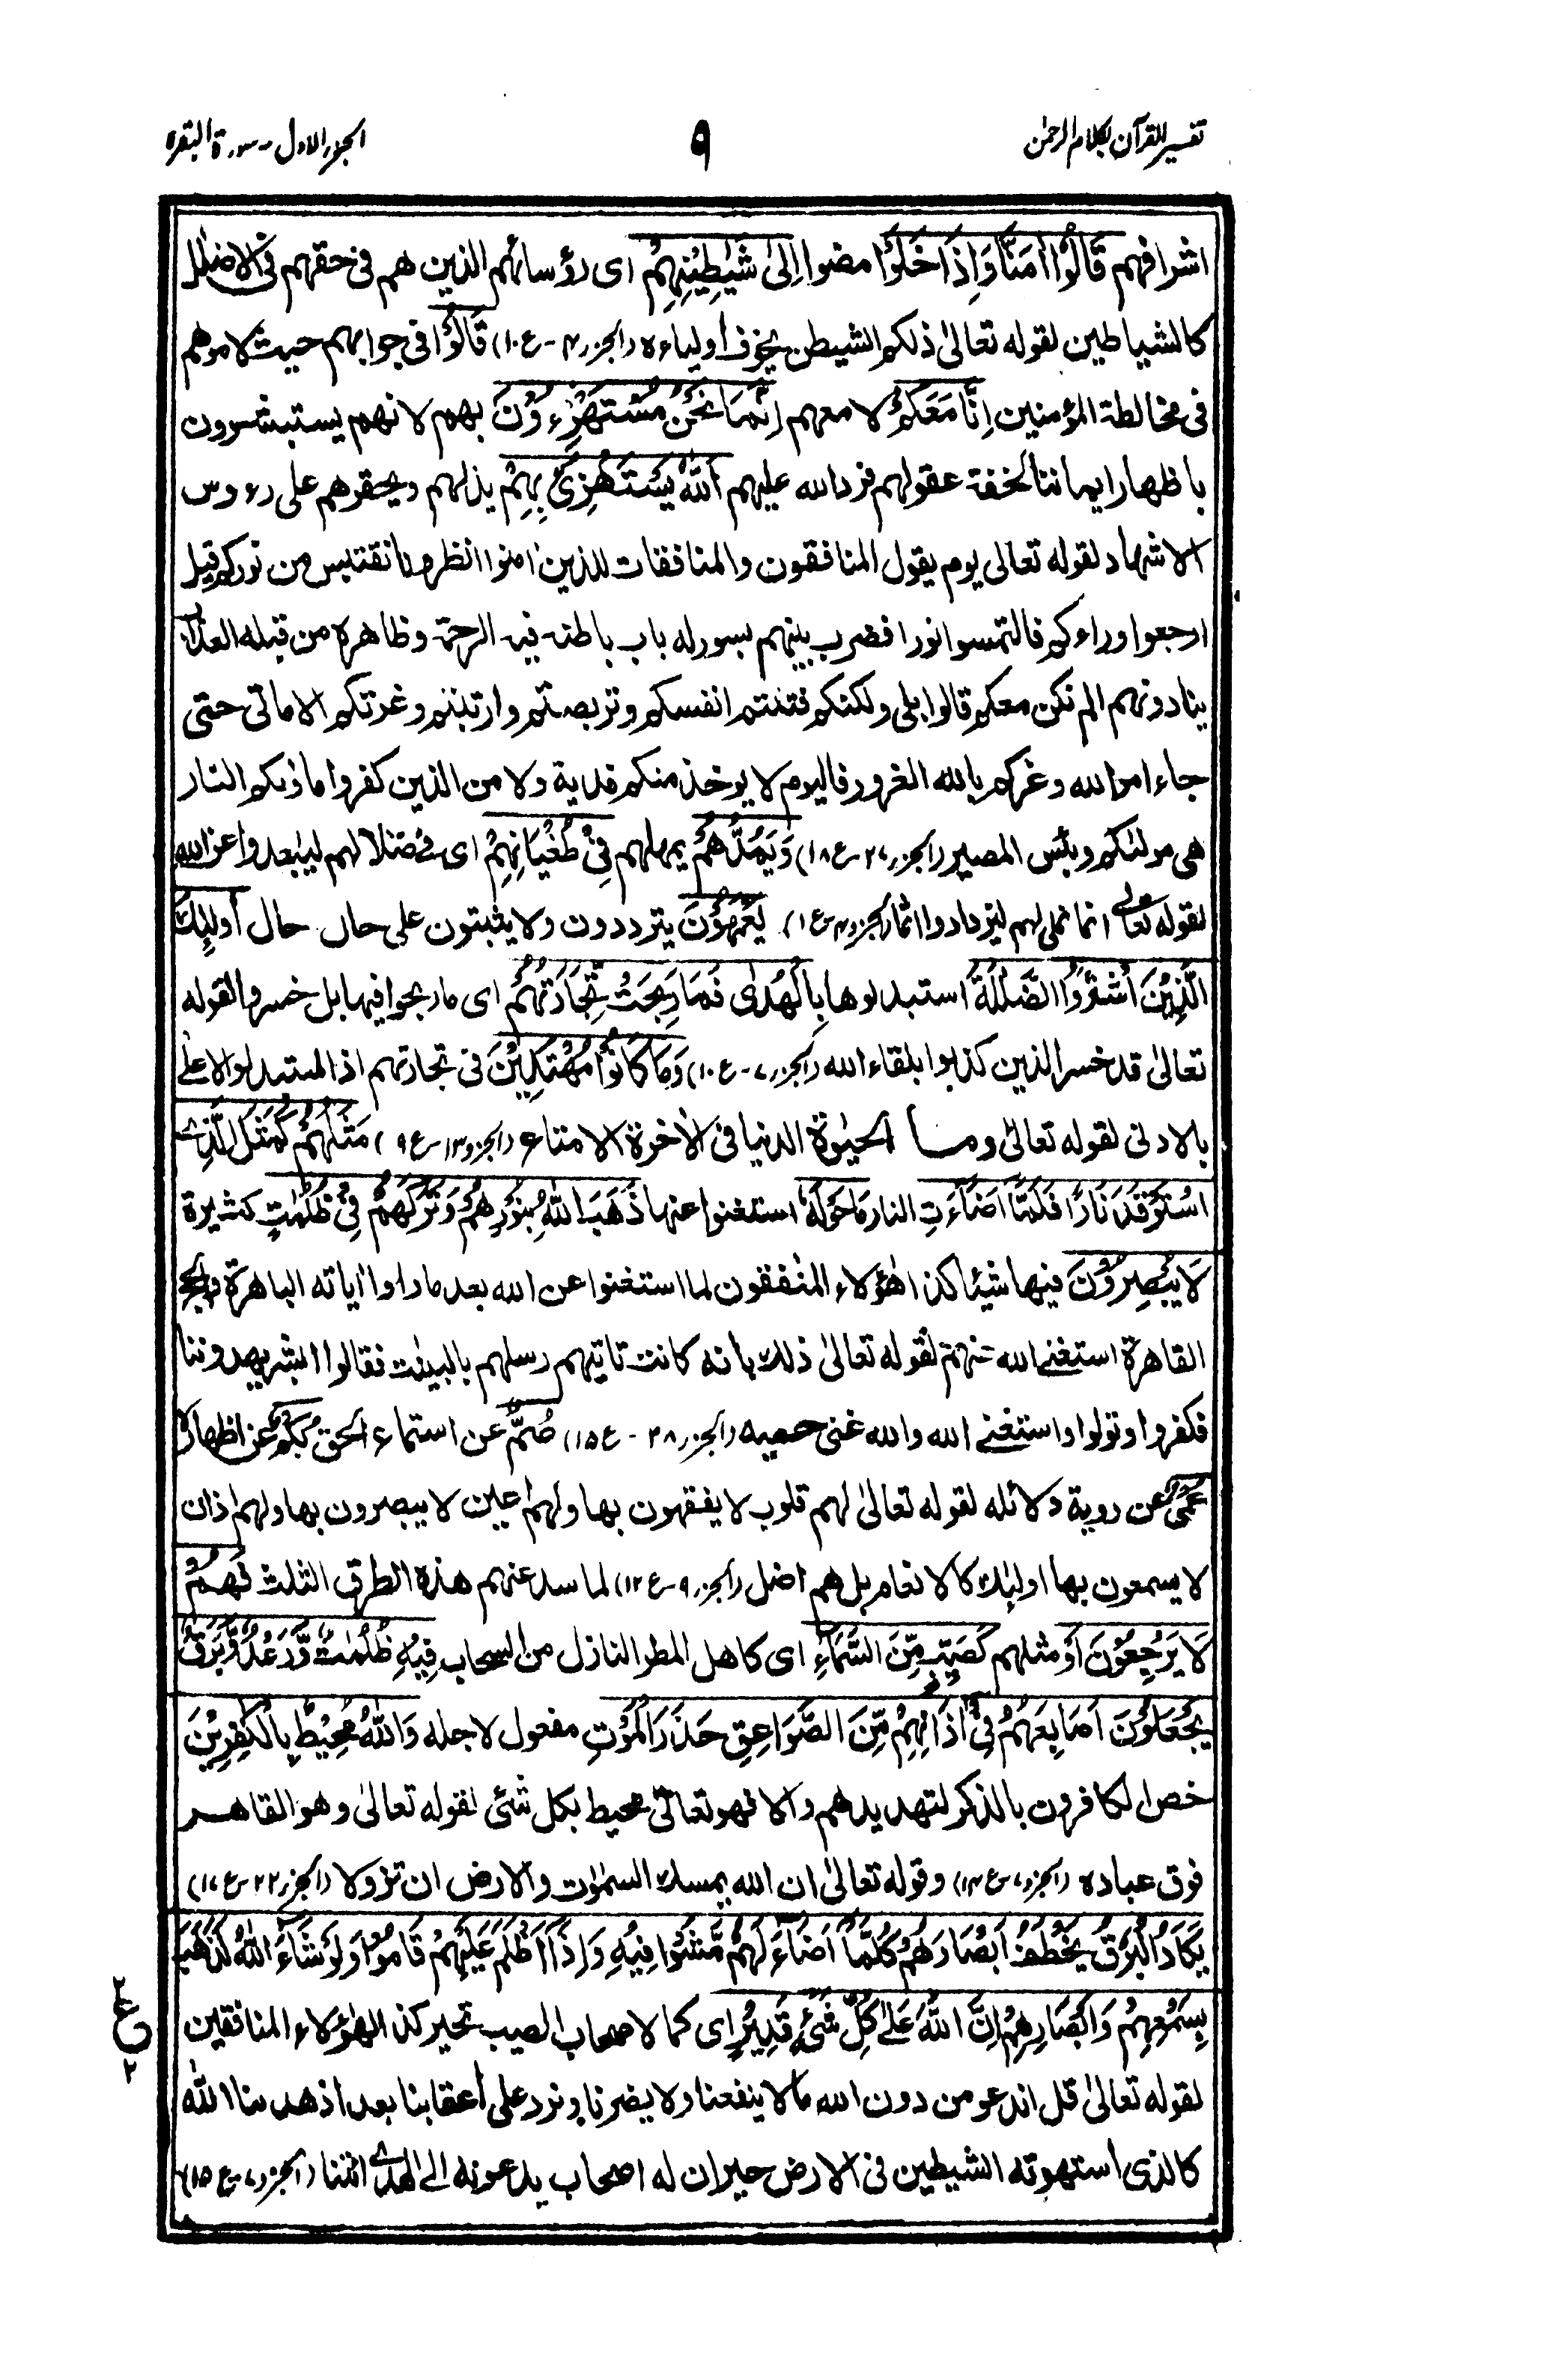 تفسیر القرآن بکلام الرحمٰن
٩
الجزء الاول - سورة البقرہ
اشرافهم قَالُوْٓا اٰمَنَّا وَاِذَا خَلَوْا مضوا اِلٰى شَيٰطِيْنِهِمْ اى رؤسائهم الذين هم فى حقهم فى الاضلال
كالشياطين لقوله تعالىٰ ذلكم الشيطن يخوف أولياءه (الجزء ٤ - ع ١٠) قَالُوْٓا فى جوابهم حيث لاموهم
فى مخالطة المؤمنين اِنَّا مَعَكُمْ لا معهم اِنَّمَا نَحْنُ مُسْتَهْزِءُوْنَ بهم لانهم يستبشرون
باظهار ايماننا لخفة عقولهم فرد الله عليهم اَللّٰهُ يَسْتَهْزِئُ بِهِمْ يذلهم ويحقرهم على رءوس
الاشهاد لقوله تعالى يوم يقول المنافقون والمنافقات للذين اٰمنوا انظرونا نقتبس من نوركم قيل
ارجعوا وراءكم فالتمسوا نورا فضرب بينهم بسور له باب باطنه فيه الرحمة وظاهره من قبله العذاب
ينادونهم الم نكن معكم قالوا بلى ولكنكم فتنتم انفسكم وتربصتم وارتبتم وغرتكم الامانى حتى
جاء امر الله وغركم بالله الغرور فاليوم لا يوخذ منكم فدية ولا من الذين كفروا ماوٰىكم النار
هى مولٰىكم وبئس المصير (الجزء ٢٧ - ع ١٨) وَيَمُدُّهُمْ يمهلهم فِيْ طُغْيَانِهِمْ اى فى ضلالهم ليبٰعدوا عن الله
لقوله تعالى انما نملى لهم ليزدادوا اثما (الجزء ٤ ع ٩) يَعْمَهُوْنَ يترددون ولا يثبتون على حال حال أُولٰٓئِكَ
الَّذِيْنَ اشْتَرَوُا الضَّلٰلَةَ استبدلوها بِالْهُدٰى فَمَا رَبِحَتْ تِّجَارَتُهُمْ اى ما ربحوا فيها بل خسروا لقوله
تعالىٰ قد خسر الذين كذبوا بلقاء الله (الجزء ٧ - ع ١٠) وَمَا كَانُوْا مُهْتَدِيْنَ فى تجارتهم اذ استبدلوا الاعلٰى
بالادنى لقوله تعالىٰ وما الحيٰوة الدنيا فى الاٰخرة الا متاع (الجزء ١٣ ع ٩) مَثَلُهُمْ كَمَثَلِ الَّذِى
اسْتَوْقَدَ نَارًا فَلَمَّآ اَضَآءَتْ النار مَا حَوْلَهٗ استغنوا عنها ذَهَبَ اللّٰهُ بِنُوْرِهِمْ وَتَرَكَهُمْ فِيْ ظُلُمٰتٍ كثيرة
لَا يُبْصِرُوْنَ فيها شيئا كذا هٰؤلاء المنٰفقون لما استغنوا عن الله بعد ما راوا اٰياته الباهرة والحجج
القاهرة استغنى الله عنهم لقوله تعالىٰ ذلك بانه كانت تاتيهم رسلهم بالبينٰت فقالوا ابشر يهدوننا
فكفروا وتولوا واستغنى الله والله غنى حميد (الجزء ٢٨ - ع ١٥) صُمٌّ عن استماع الحق بُكْمٌ عن اظهاره
عُمْىٌ عن روية دلائله لقوله تعالىٰ لهم قلوب لا يفقهون بها ولهم اعين لا يبصرون بها ولهم اٰذان
لا يسمعون بها اولٰئك كالانعام بل هم اضل (الجزء ٩ - ع ١٢) لما سد عنهم هذه الطرق الثلث فَهُمْ
لَا يَرْجِعُوْنَ اَوْ مثلهم كَصَيِّبٍ مِّنَ السَّمَآءِ اى كاهل المطر النازل من السحاب فِيْهِ ظُلُمٰتٌ وَّرَعْدٌ وَّبَرْقٌ
يَجْعَلُوْنَ اَصَابِعَهُمْ فِيْٓ اٰذَانِهِمْ مِّنَ الصَّوَاعِقِ حَذَرَ الْمَوْتِ مفعول لاجله وَاللّٰهُ مُحِيْطٌ بِالْكٰفِرِيْنَ
خص الكافرون بالذكر لتهديدهم والا فهو تعالىٰ محيط بكل شئى لقوله تعالىٰ وهو القاهر
فوق عباده (الجزء ٧ ع ١٤) وقوله تعالىٰ ان الله يمسك السمٰوٰت والارض ان تزولا (الجزء ٢٢ ع ١٧)
يَكَادُ الْبَرْقُ يَخْطَفُ اَبْصَارَهُمْ كُلَّمَآ اَضَآءَ لَهُمْ مَّشَوْا فِيْهِ وَاِذَآ اَظْلَمَ عَلَيْهِمْ قَامُوْا وَلَوْ شَآءَ اللّٰهُ لَذَهَبَ
بِسَمْعِهِمْ وَاَبْصَارِهِمْ اِنَّ اللّٰهَ عَلٰى كُلِّ شَيْءٍ قَدِيْرٌ اى كما لاصحاب الصيب تحير كذا لهٰؤلاء المنافقين
لقوله تعالىٰ قل اندعو من دون الله ما لا ينفعنا ولا يضرنا ونرد على أعقابنا بعد اذ هدىنا الله
كالذى استهوته الشيطين فى الارض حيران له اصحاب يدعونه الى الهدى ائتنا (الجزء ٧ - ع ١٥)
٢
ع
٢